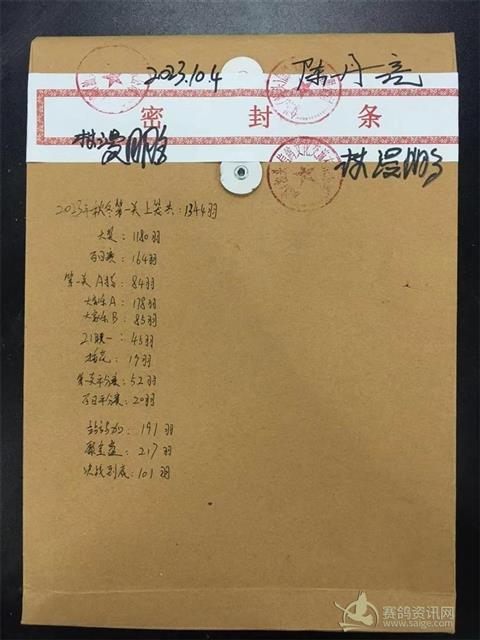 2023.10.4
陈丹亮
密封条
2023年秋冬第一关上笼共:1344羽
大奖:1180羽
百日赛:164羽
第一关A指:84羽
大家乐A:178羽
大家乐B:85羽
21联一:45羽
插花:19羽
第一关平分赛:52羽
百日平分赛:20羽
站站加:191羽
聚宝盆:217羽
决战到底:101羽
赛鸽资讯网
www.saige.com